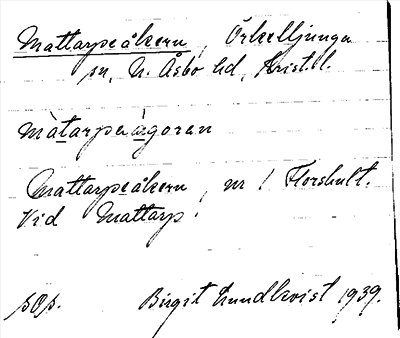 Mattarpeåkern, Örkelljunga
sn, N. Åsbo hd, Krist. l.
Mattarpeåkern, nr 1 Florshult.
Vid Mattarp.
sOs. Birgit Lundkvist 1939.